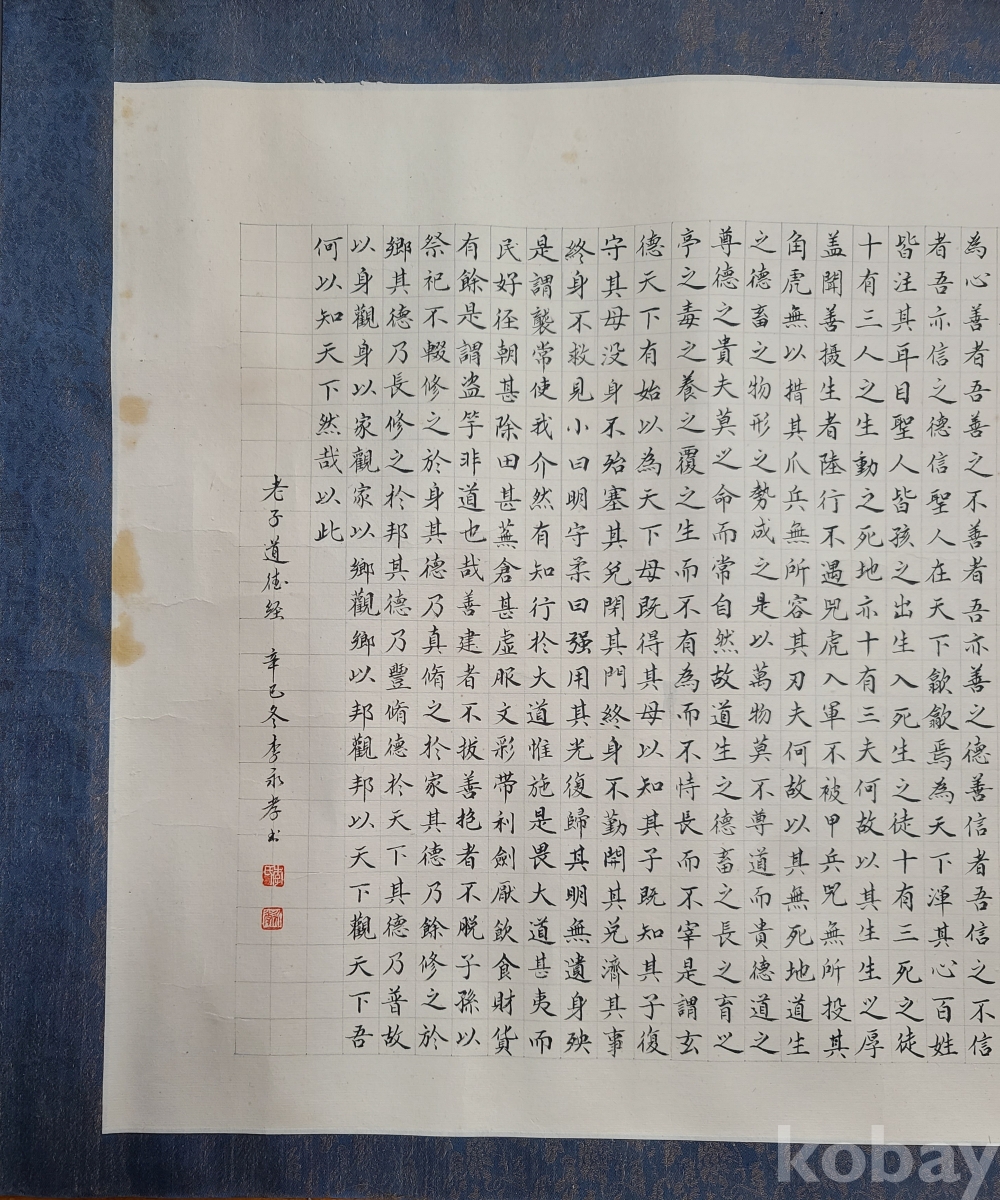 為心善者吾善之不善者吾亦善之德善信者吾信之不信
者吾亦信之德信聖人在天下歙歙焉為天下渾其心百姓
皆注其耳目聖人皆孩之出生入死生之徒十有三死之徒
十有三人之生動之死地亦十有三夫何故以其生生之厚
盖聞善摄生者陸行不遇兕虎入軍不被甲兵兕無所投其
角虎無以措其爪兵無所容其刃夫何故以其無死地道生
之德畜之物形之勢成之是以萬物莫不尊道而貴德道之
尊德之貴夫莫之命而常自然故道生之德畜之長之育之
亭之毒之養之覆之生而不有為而不恃長而不宰是謂玄
德天下有始以為天下母既得其母以知其子既知其子復
守其母没身不殆塞其兑閉其門終身不勤開其兑濟其事
終身不救見小曰明守柔曰强用其光復歸其明無遺身殃
是謂襲常使我介然有知行於大道惟施是畏大道甚夷而
民好径朝甚除田甚蕪倉甚虛服文彩带利劍厭飲食財貨
有餘是謂盗竽非道也哉善建者不拔善抱者不脱子孫以
祭祀不輟修之於身其德乃真脩之於家其德乃餘修之於
鄉其德乃長修之於邦其德乃豐脩德於天下其德乃普故
以身觀身以家觀家以鄉觀鄉以邦觀邦以天下觀天下吾
何以知天下然哉以此
老子道德经 辛巳冬李永孝书
kobay